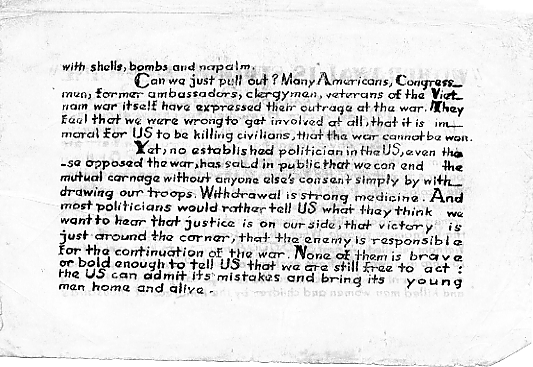 with shells, bombs and napalm.
Can we just pull out? Many Americans, Congress_
men, former ambassadors, clergymen, veterans of the Viet_
nam war itself have expressed their outrage at the war. They
feel that we were wrong to get involved at all, that it is im_
moral for US to be killing civilians, that the war cannot be won.
Yet, no established politician in the US, even tho
-se opposed the war, has said in public that we can end the
mutual carnage without anyone else's consent simply by with_
drawing our troops. Withdrawal is strong medicine. And
most politicians would rather tell US what they think we
want to hear that justice is on our side, that victory is
just around the corner, that the enemy is responsible
for the continuation of the war. None of them is brave
or bold enough to tell US that we are still free to act :
the US can admit its mistakes and bring its young
men home and alive.